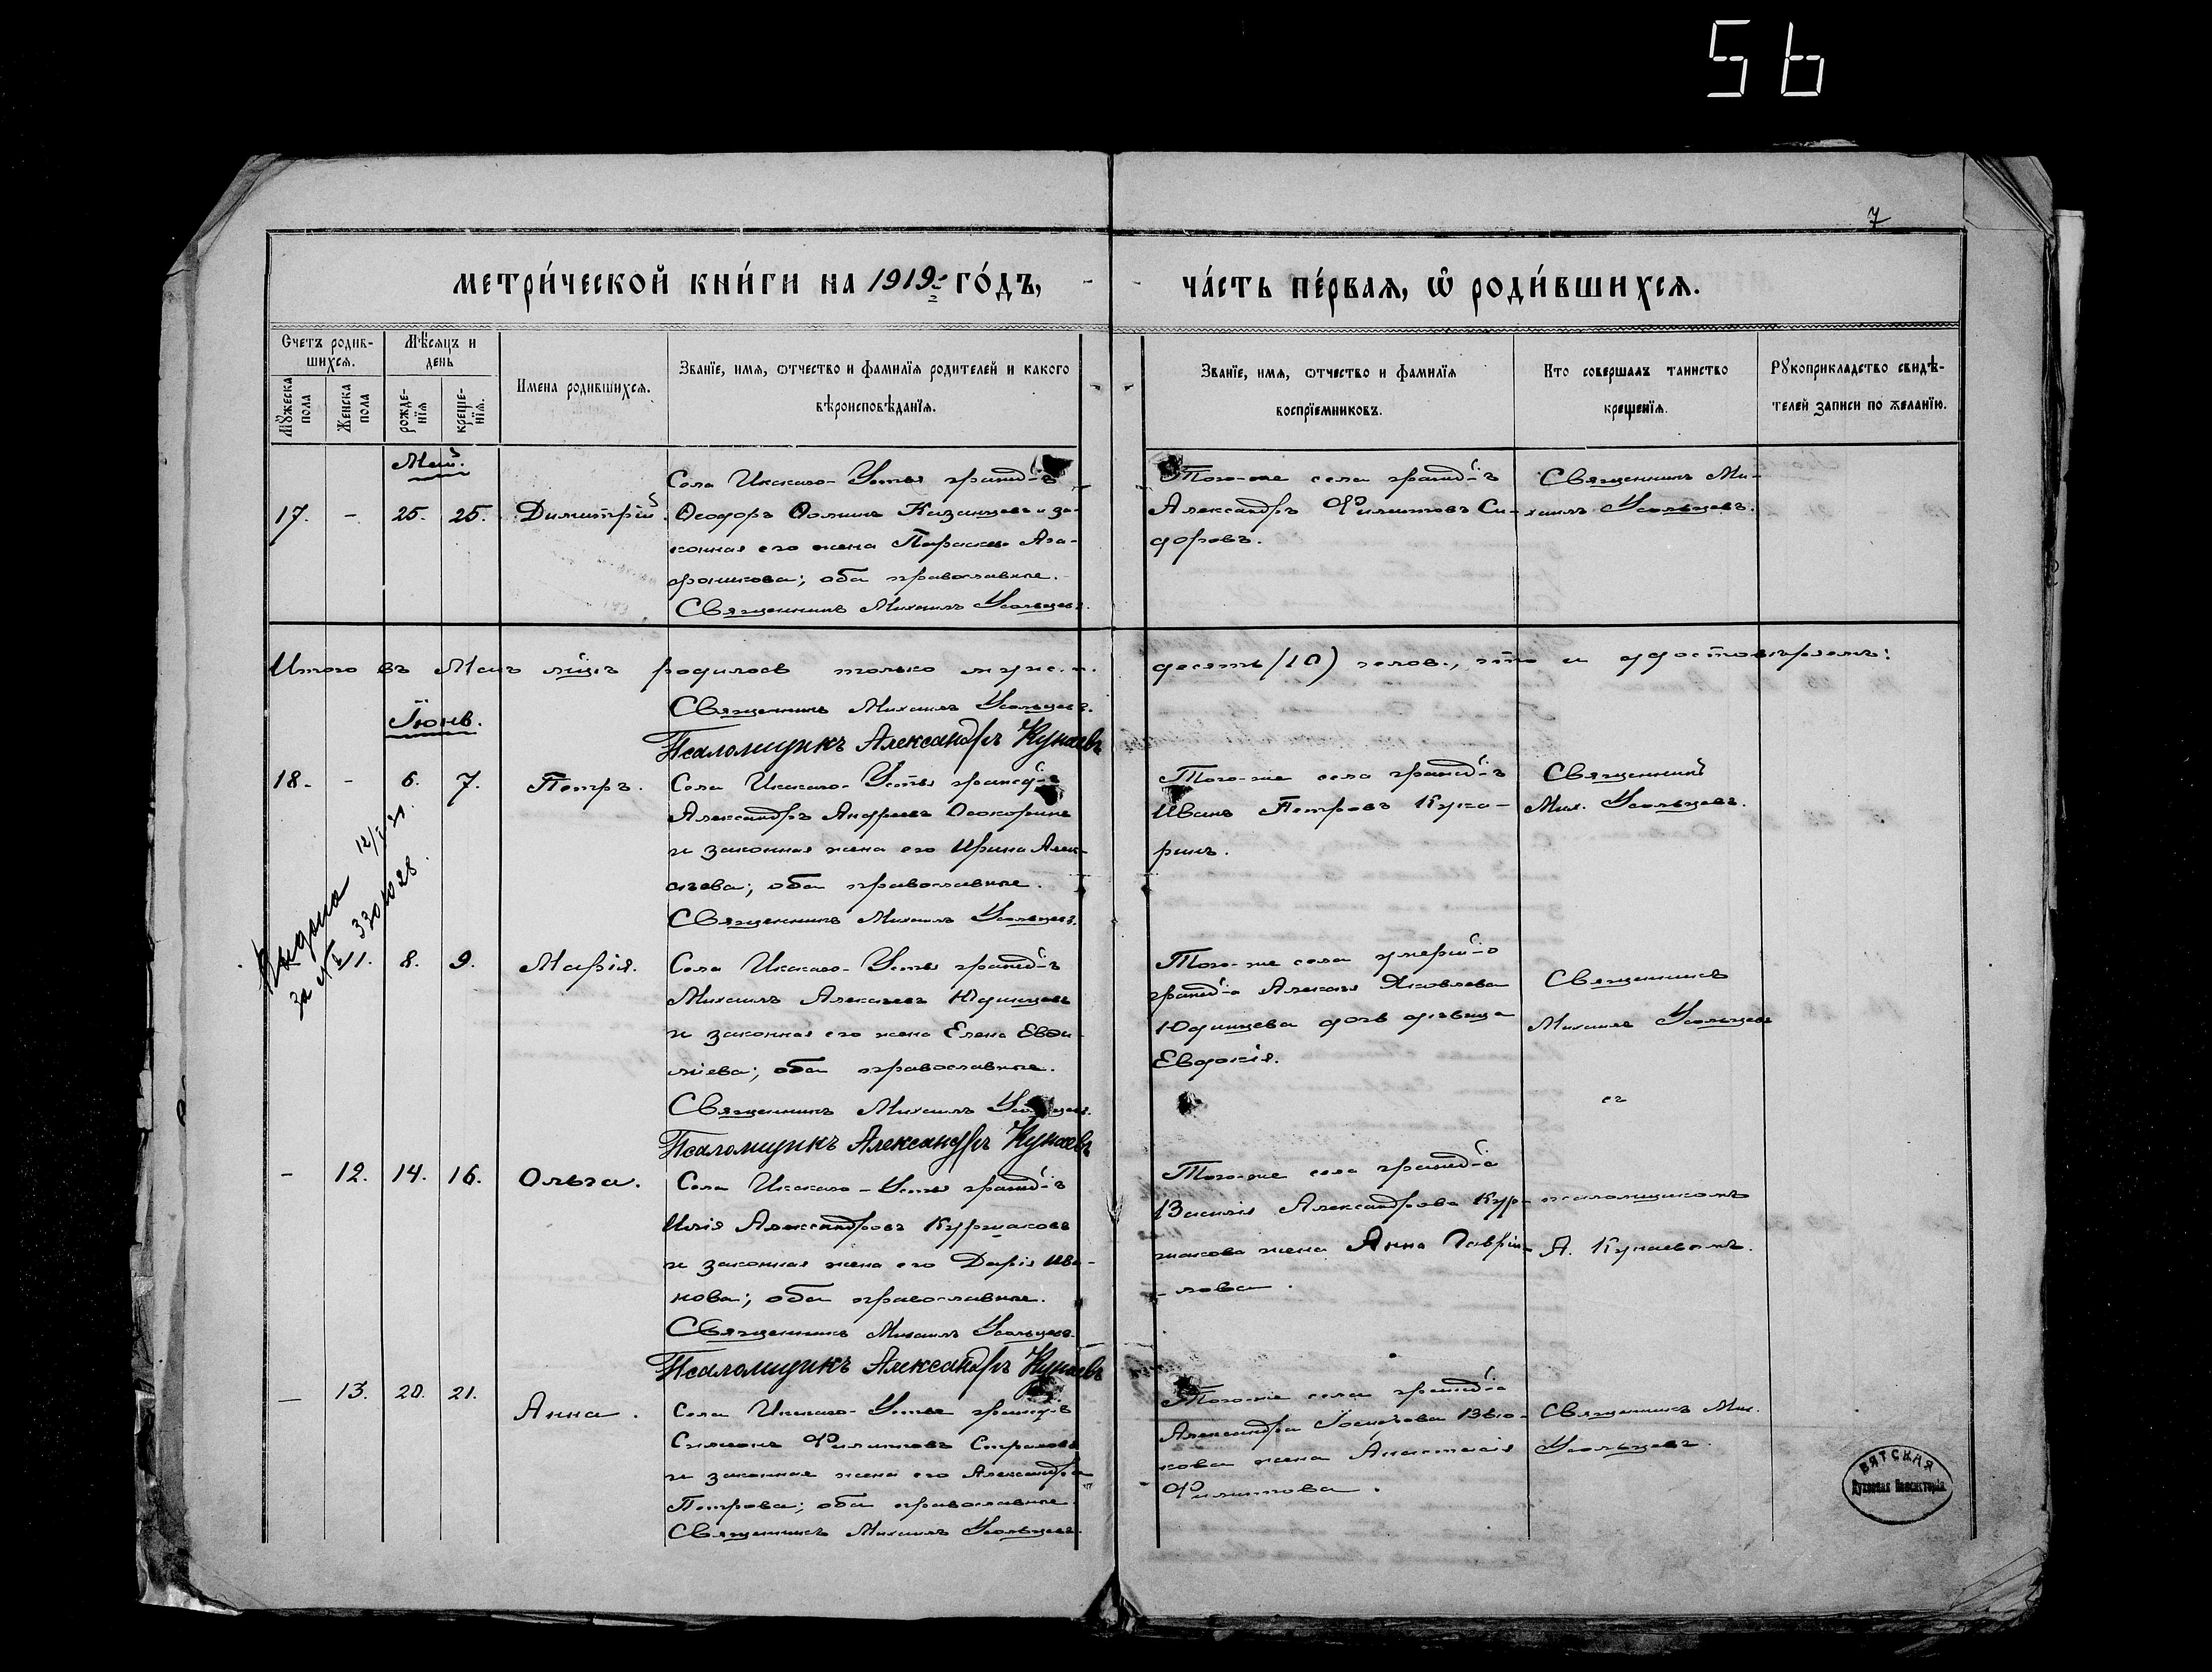 56
7
МЕТРИ́ЧЕСКОЙ КНИ́ГИ НА 1919 ГО́ДЪ,
ЧА́СТЬ ПЕ́РВАЯ, Ѡ РОДИ́ВШИХСЯ.
Счетъ родив-
шихся.
Мѣсяцъ и
день
Мꙋжеска
пола
Женска
пола
рожде-
нїя
креще-
нїя.
Имена родившихся.
Званїе, имя, ѿчество и фамилїя родителей и какого
вѣроисповѣданїя.
Званїе, имя, ѿчество и фамилїя
воспрїемниковъ.
Кто совершалъ таинство
крещенїя.
Рꙋкоприкладство свидѣ-
телей записи по желанїю.
Май.
17. - 25. 25. Димитрій
Села Икскаго-Устья гражд-ъ
Ѳеодоръ Ѳоминъ Казанцевъ и за-
конная его жена Параскева Ага-
оба православные.
Священникъ Михаилъ Усольцевъ.
Того-же села гражд-ъ
Александръ Филиповъ Си-
доровъ.
Священникъ Ми-
хаилъ Усольцевъ.
Итого въ Маѣ мѣц родилось только муж.
десять (10) челов., что и удостовѣряемъ:
Священникъ Михаилъ Усольцевъ.
Псаломщикъ Александръ Кунаевъ
Іюнь.
18. - 6. 7. Петръ.
Села Икскаго-Устья гражд-ъ
Александръ Андреевъ Осокоринъ
и законная жена его Ирина Алек-
сѣева; оба православные.
Священникъ Михаилъ Усольцевъ.
Того-же села гражд-ъ
Иванъ Петровъ Кука-
ринъ.
Священникъ
Мих. Усольцевъ.
Выдана
за № 33010 28
11. 8. 9. Марія.
Села Икскаго-Устья гражд-ъ
Михаилъ Алексѣевъ Юдинцевъ
и законная его жена Елена Евѳи-
міева; оба православные.
Священникъ Михаилъ Усольцевъ.
Псаломщикъ Александръ Кунаевъ
Того-же села умерш-о
гражд-а Алексѣя Яковлева
Юдинцева дочь дѣвица
Евдокія.
Священникъ
Михаилъ Усольцевъ
съ
псаломщикомъ
А. Кунаевымъ.
- 12. 14. 16. Ольга.
Села Икскаго-Устья гражд-ъ
Илія Александровъ Куршаковъ
и законная жена его Дарія Ива-
нова; оба православные.
Священникъ Михаилъ Усольцевъ.
Псаломщикъ Александръ Кунаевъ
Того-же села гражд-а
Василія Александрова Кур-
шакова жена Анна Гаврии-
лова.
- 13. 20. 21. Анна.
Села Икскаго-Устья гражд-ъ
Симеонъ Филиповъ Страховъ
и законная жена его Александра
Петрова; оба православные
Священникъ Михаилъ Усольцевъ.
Того-же села гражд-а
Александра Іосифова Вью-
кова жена Анастасія
Филиппова.
Священникъ Мих.
Усольцевъ.
ВЯТСКАЯ
Духовная Консисторія